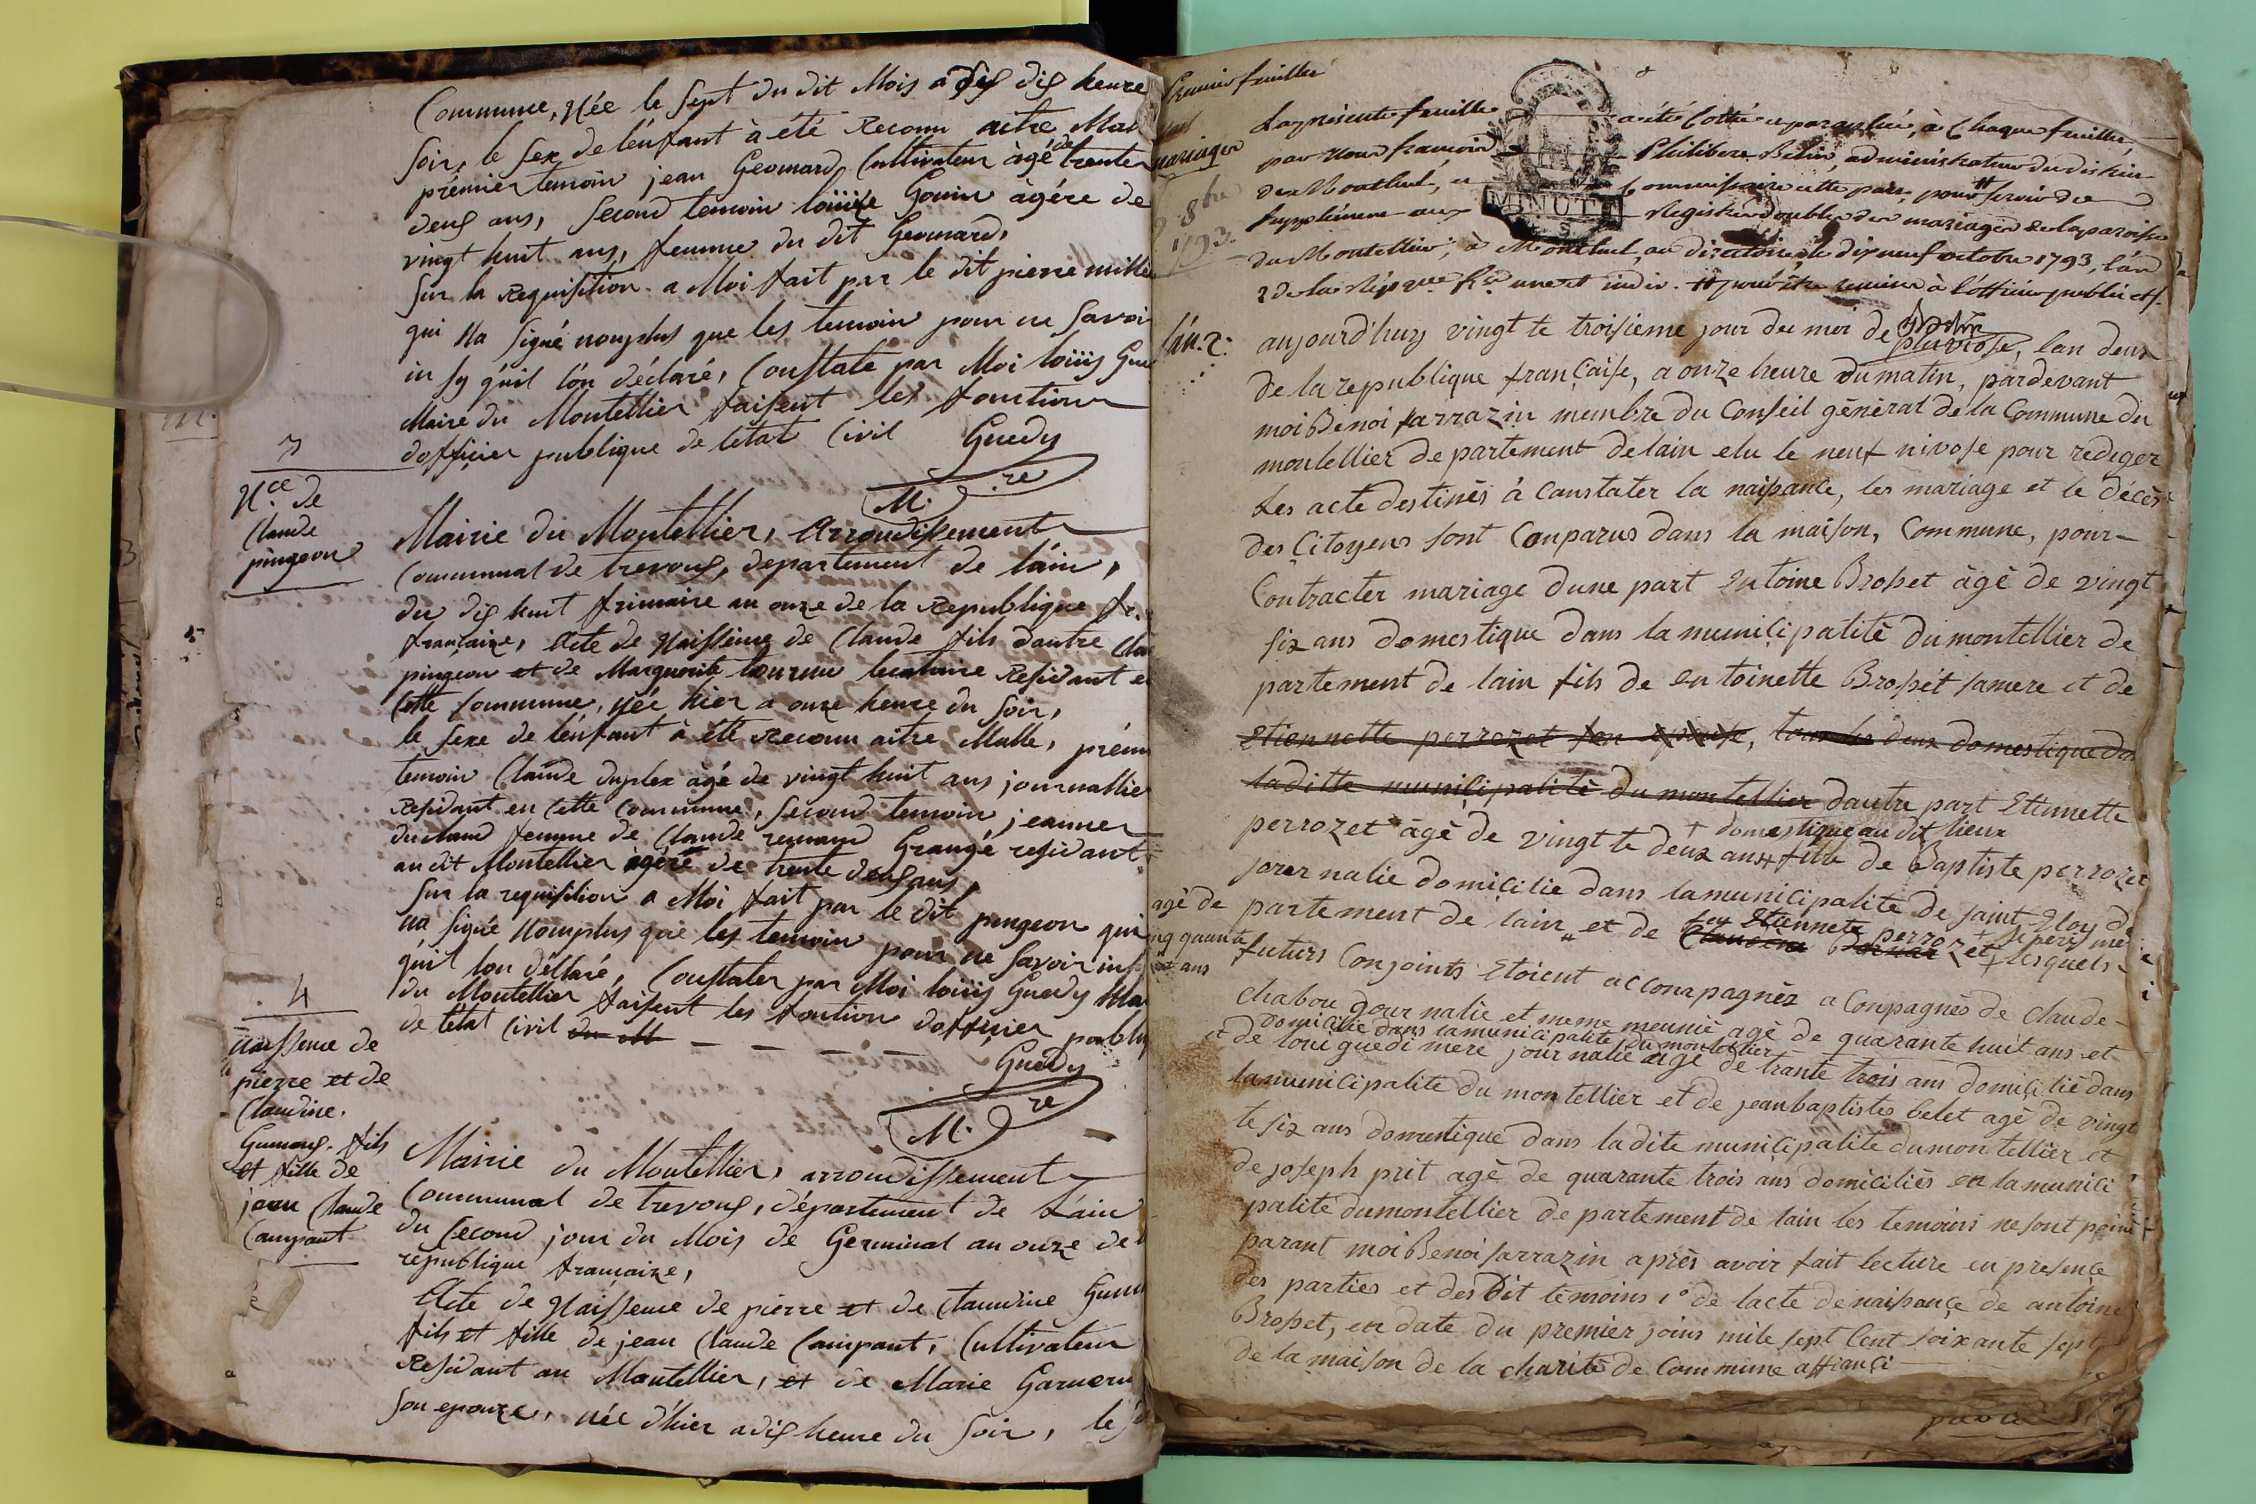 Commune, née le sept du dit Mois a dix heure
Soir, le sex de l'énfant à été Reconu aitre Mal
prémier temoin jean Geomard, Cultivateur àgé de trente
deux ans, second temoin loüise Gonin àgéze de
vingt huit ans, femme du dit Geomard,
Sur la Requisition a Moi fait par le dit pierre mille
qui Na signé nomplus que les temoin pour ne savoi
in sy qu'il l'on déclaré, Constate par Moi loüis Gue
Maire du Montellier faisent les fonction
dofficier publique de letat Civil Guedy
M.re
3
N.ce de
Claude
pingeon
Mairie du Montellier, Arrondissement
Communal de trevoux, departement de l'áin,
du dix huit frimaire an onze de la Republique fr.
francaize, Acte de Naissence de Claude fils dautre Cla
pingeon et de Marguerite locataire Residant e
Cette Commune, née hier a onze heure du soir,
le sexe de l'énfant à été Reconu aitre Malle, prémi
temoin Claude duplex àgé de vingt huit ans journallie
Residant en Cette Commune, second temoin jeanne
femme de Claude remand Grangé residant
au dit Montellier àgéze de trente deux ans,
Sur la requisition a Moi fait par le dit pingeon qui
na signé Nomplus que les temoin pour ne savoir insy
qu'il lon déllaré, Constater par Moi loüis Guedy Mai
du Montellier faisent les fontion dofficier publiq
de létat Civil du M
Guedy
M.re
4
naissence de
pierre et de
Claudine.
Gumoux. fils
et fille de
jean Claude
Campant
Mairie du Montellier, arrondissement
Communal de trevoux, département de L'áin
du second jour du Mois de Germinal an onze de l
république francaize,
Acte de Naissence de pierre et de Claudine Gum
fils et fille de jean Claude Campant, Cultivateur
Residant au Montellier, et de Marie
son epouze, née d'hier a dix heure du soir, le s
Premier feuillet
mariages
8bre
1793.
La présente feuille a été Cottée et paraphée, à Chaque feuillet,
par nous françois Philibert Belin, administrateur du district
de Montluel, et Commissaire cette part, pour servir de
Supplément aux Registre double des mariages de la paroisse
du Montellier, à Montluel, au directoire, le dix neuf octobre 1793, l'an
2 de la Rép.que fr.se une et indiv. pour être remise à l'officier public
MINUTE
l'an. 2.
aujourd'huy vingt te troisieme jour du moi de pluviose, lan deux
de la republique française, a onze heure du matin, pardevant
moi Benoi sarrazin membre du Conseil général de la Commune du
montellier departement delain elu le neuf nivose pour rediger
Les acte destinés á Constater la naissance, les mariage et le décès
des Citoyens sont Conparus dans la maison, Commune, pour
Contracter mariage dune part entoine Brosset àgé de vingt
six ans domestique dans la municipalité du montellier de
partement de lain fils de en toinette Brosset samere et de
Etiennette perrozet son , tous les deux domestique da
laditte municipalité du montellier dautre part Etiennette
perrozet àgé de vingt te deux ans fille de Baptiste perrozet
+ domestique au dit lieux
jornnalié domicilié dans lamunicipalité de saint Eloy de
partement de lain et de Claudine Bornar lesquels
feu Etiennete perrozet
agé de
inq quante
ans
futurs Conjoints Etoient accompagnéz a Conpagnés de claude
chabou journalie et meme meunié agé de quarante huit ans et
domicilié dans lamunicipalité du montellier
et de loui guedi mere journalié agé de trante trois ans domicilié dans
lamunicipalite du montellier et de jean baptiste belet agé de vingt
te six ans domestique dans ladite municipalité dumontellier et
de joseph prit agé de quarante trois ans domiciliés en lamunici
palité dumontellier departement de lain les temoins nesont point
parant moi Benoi sarrazin après avoir fait lecture en presence
des parties et des dit témoins 1° de lacte denaissance de antoine
Brosset, en date du premier joins mile sept Cent soixante sept
de la maison de la charité de Commune affranci